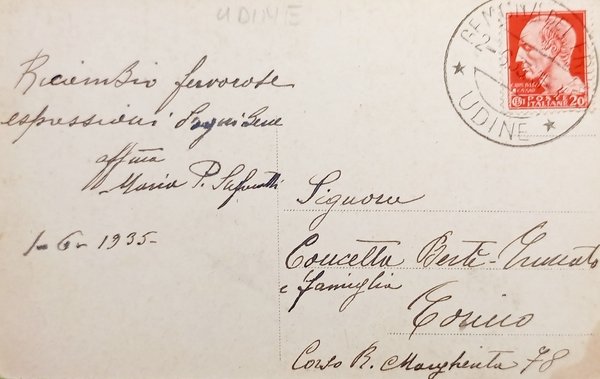 UDINE
Ricambio fervorose
espressioni d'ogni bene
affma
Maria P.
1-6-1935-
Signora
Concetta Berté-
e famiglia
Torino
Corso R. Margherita 78
GEMONA DEL
UDINE
POSTE
ITALIANE 20